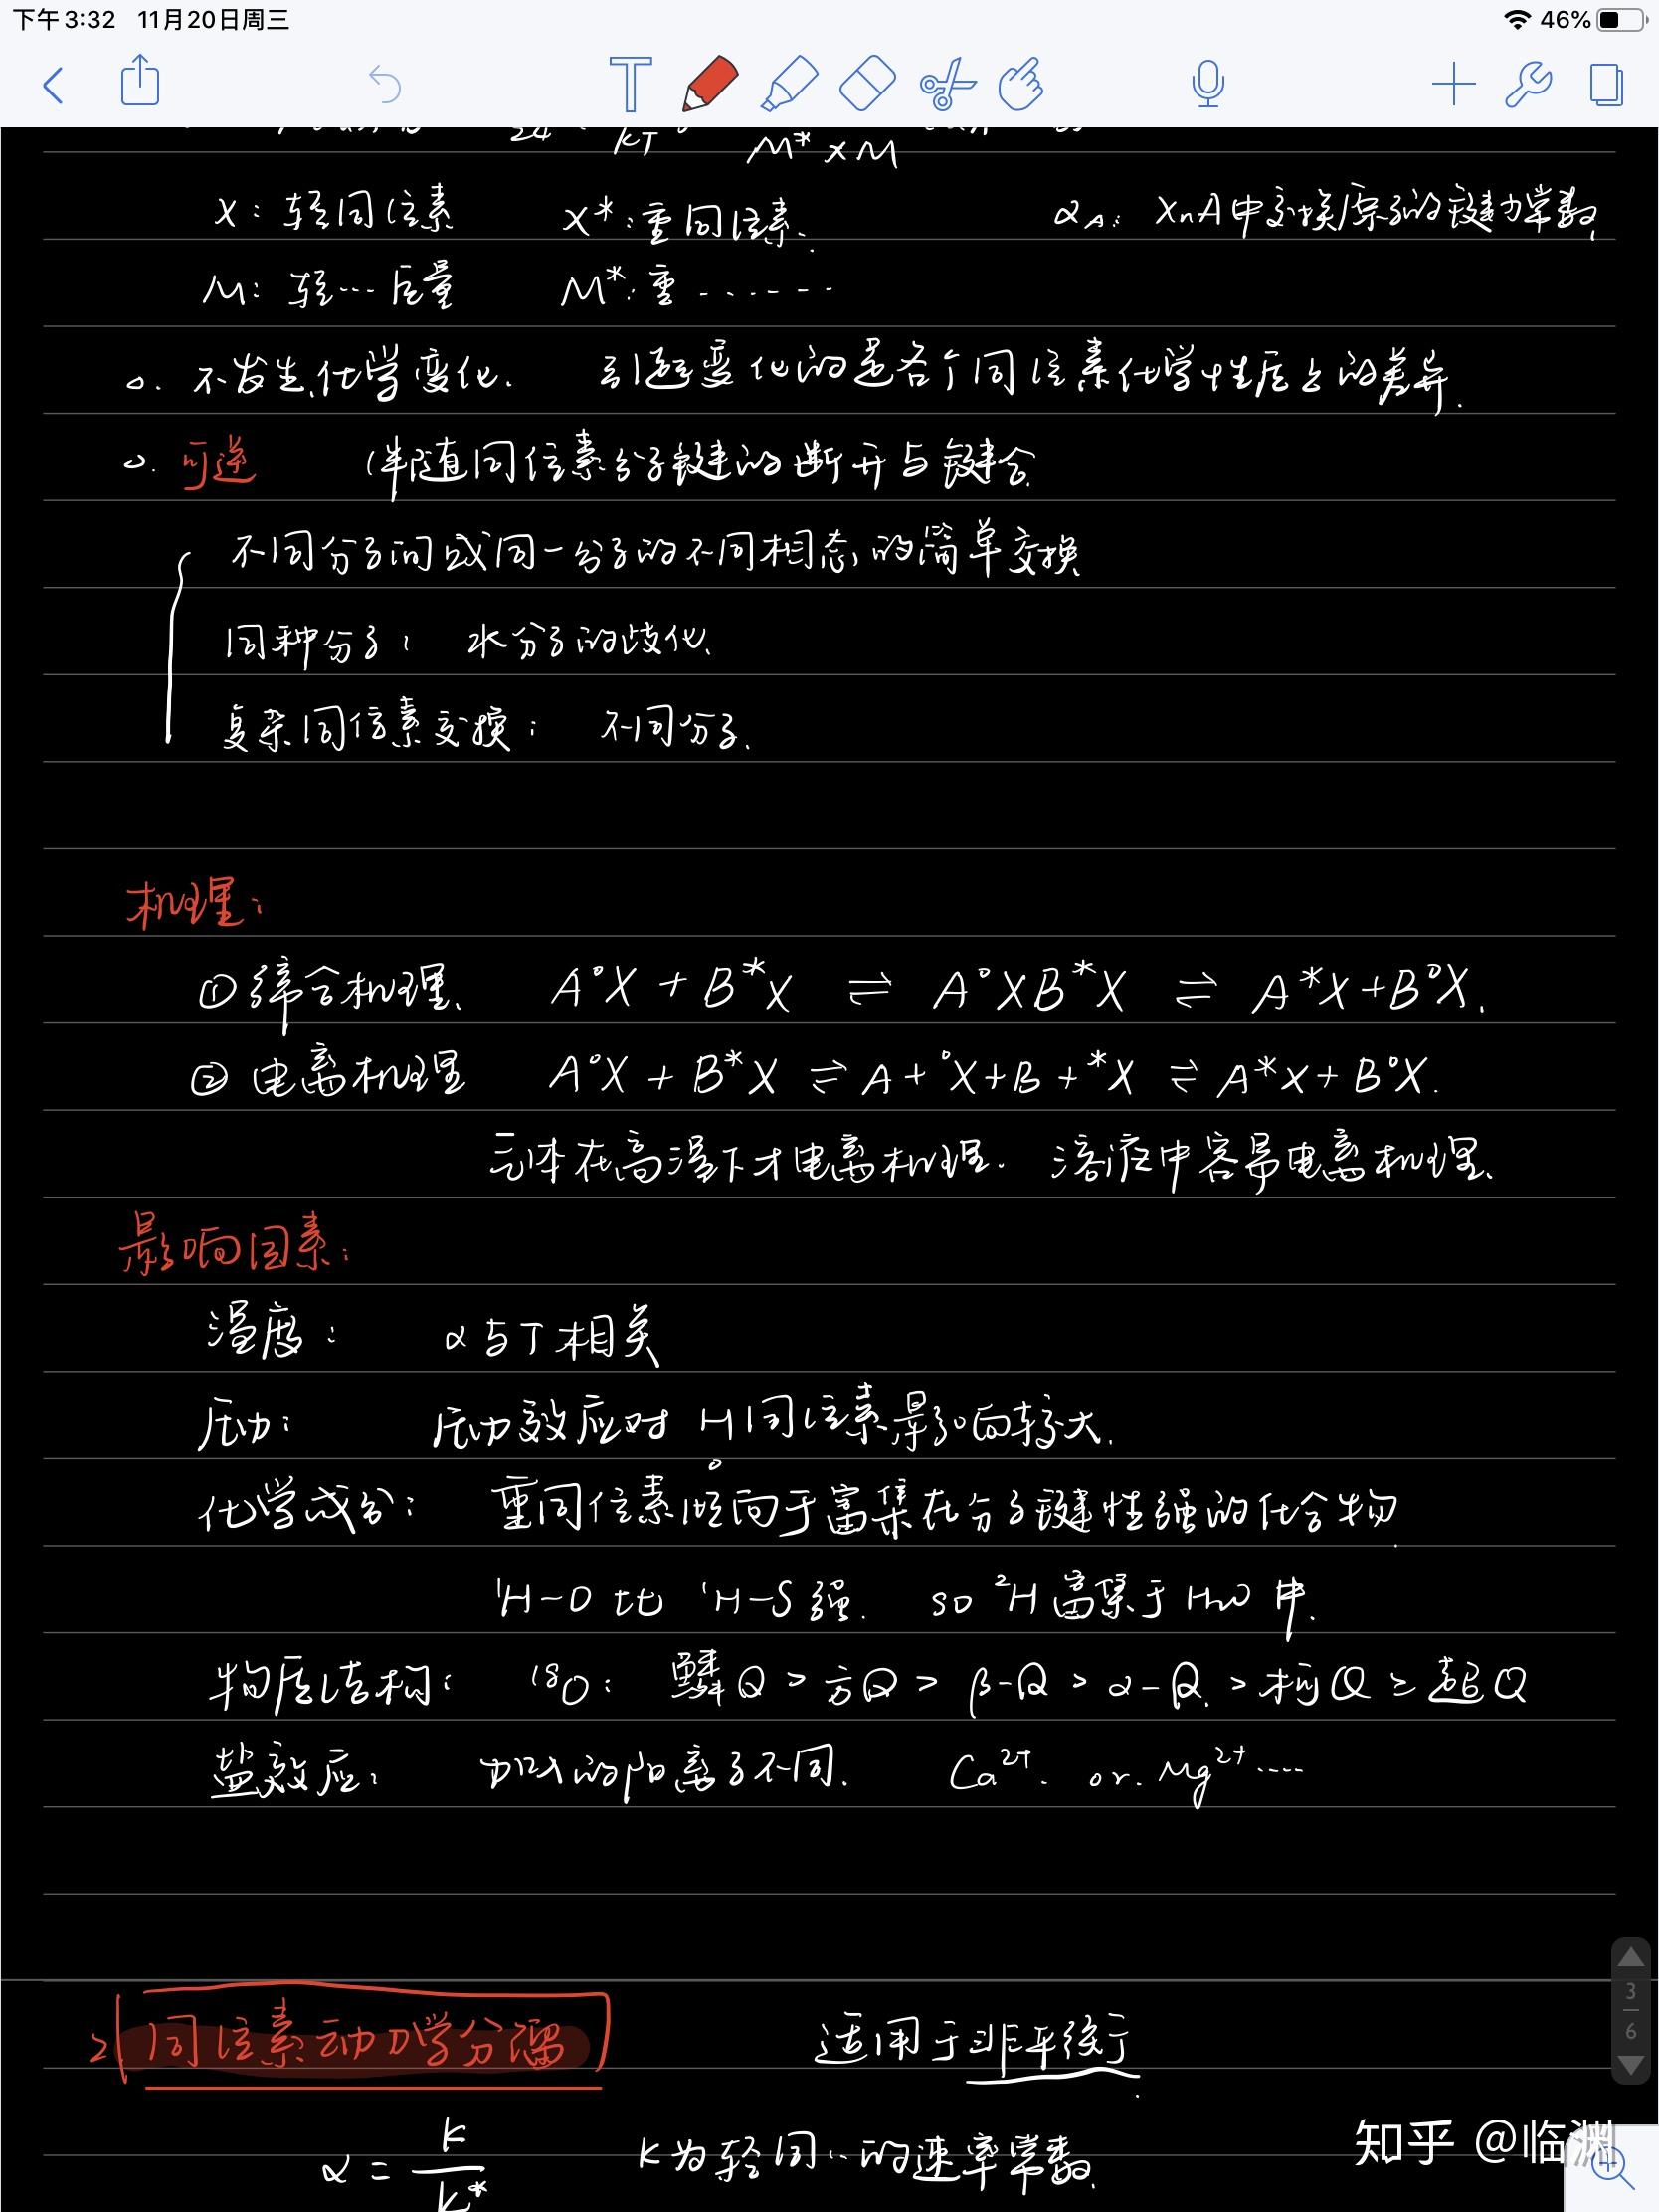 下午3:32 11月20日周三 46%
kT M* × M
X：轻同位素 X*：重同位素. αA： XnA中交换原子的键力常数
M：轻…质量 M*：重……
不发生化学变化. 引起变化的是各个同位素化学性质上的差异.
可逆 伴随同位素分子键的断开与键合
不同分子间或同一分子的不同相态的简单交换
同种分子： 水分子的歧化.
复杂同位素交换： 不同分子.
机理：
①缔合机理. A°X + B*X ⇌ A°XB*X ⇌ A*X+B°X.
② 电离机理 A°X + B*X ⇌ A+°X+B+*X ⇌ A*X+B°X.
气体在高温下才电离机理. 溶液中容易电离机理.
影响因素：
温度： α与T相关
压力： 压力效应对H同位素影响较大.
化学成分： 重同位素倾向于富集在分子键性强的化合物
¹H-O 比 ¹H-S强. so ²H富集于H₂O中.
物质结构： ¹⁸O： 鳞Q > 方Q > β-Q > α-Q. > 柯Q ≥ 超Q
盐效应： 加入的阳离子不同. Ca²⁺. or. Mg²⁺····
2) 同位素动力学分馏 适用于非平衡
3
6
α = k/k* k为轻同..的速率常数.
知乎 @临渊